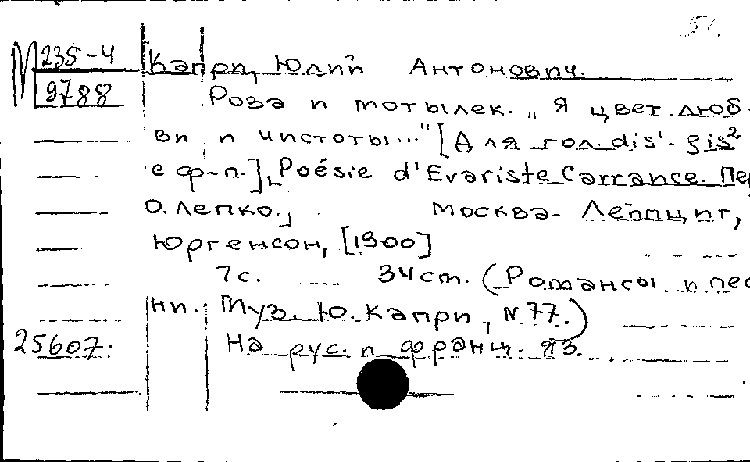 51.
М 235-4
9788
Капри, Юлий Антонович.
Роза и мотылек. „Я цвет люб-
ви и чистоты..." [Для гол. dis'-gis²
с ф-п.], Poésie d'Evariste Carrance. Пер.
О. Лепко.
Москва-Лейпциг,
Юргенсон, [1900]
7 с. 34 cm. (Романсы и пес-
ни. Муз. Ю. Капри, N. 77.)
25607.
На рус. и франц. яз.